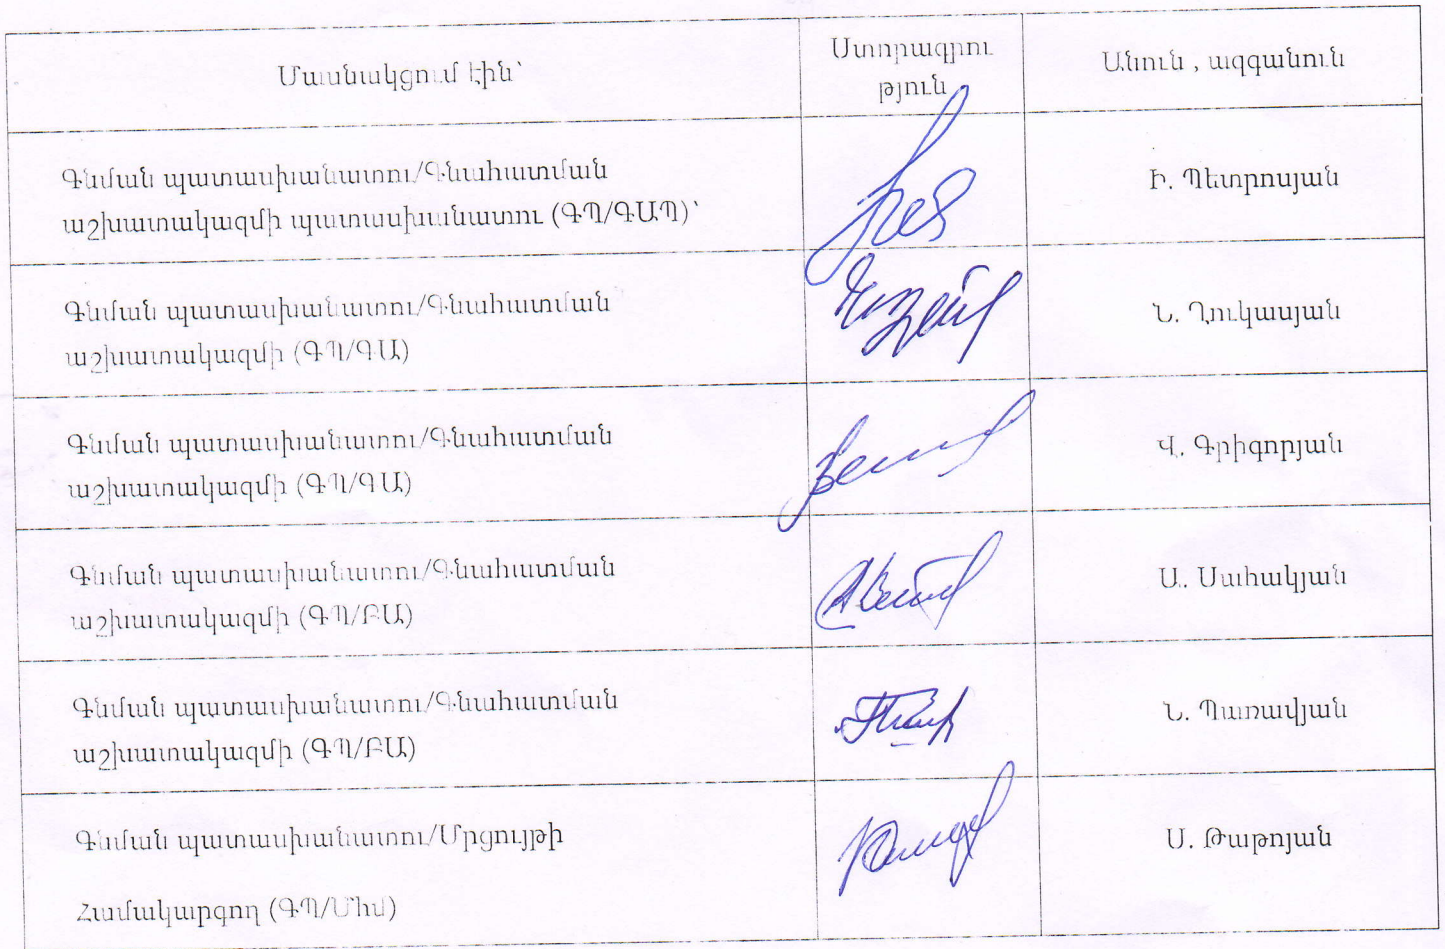 Մասնակցում էին՝
Ստորագրու
թյուն
Անուն , ազգանուն
Գնման պատասխանատու/Գնահատման
աշխատակազմի պատասխանատու (ԳՊ/ԳԱՊ)՝
Ի. Պետրոսյան
Գնման պատասխանատու/Գնահատման
աշխատակազմի (ԳՊ/ԳԱ)
Ն. Ղուկասյան
Գնման պատասխանատու/Գնահատման
աշխատակազմի (ԳՊ/ԳԱ)
Վ. Գրիգորյան
Գնման պատասխանատու/Գնահատման
աշխատակազմի (ԳՊ/ԲԱ)
Ա. Սահակյան
Գնման պատասխանատու/Գնահատման
աշխատակազմի (ԳՊ/ԲԱ)
Ն. Պառավյան
Գնման պատասխանատու/Մրցույթի
Համակարգող
Ս. Թաթոյան